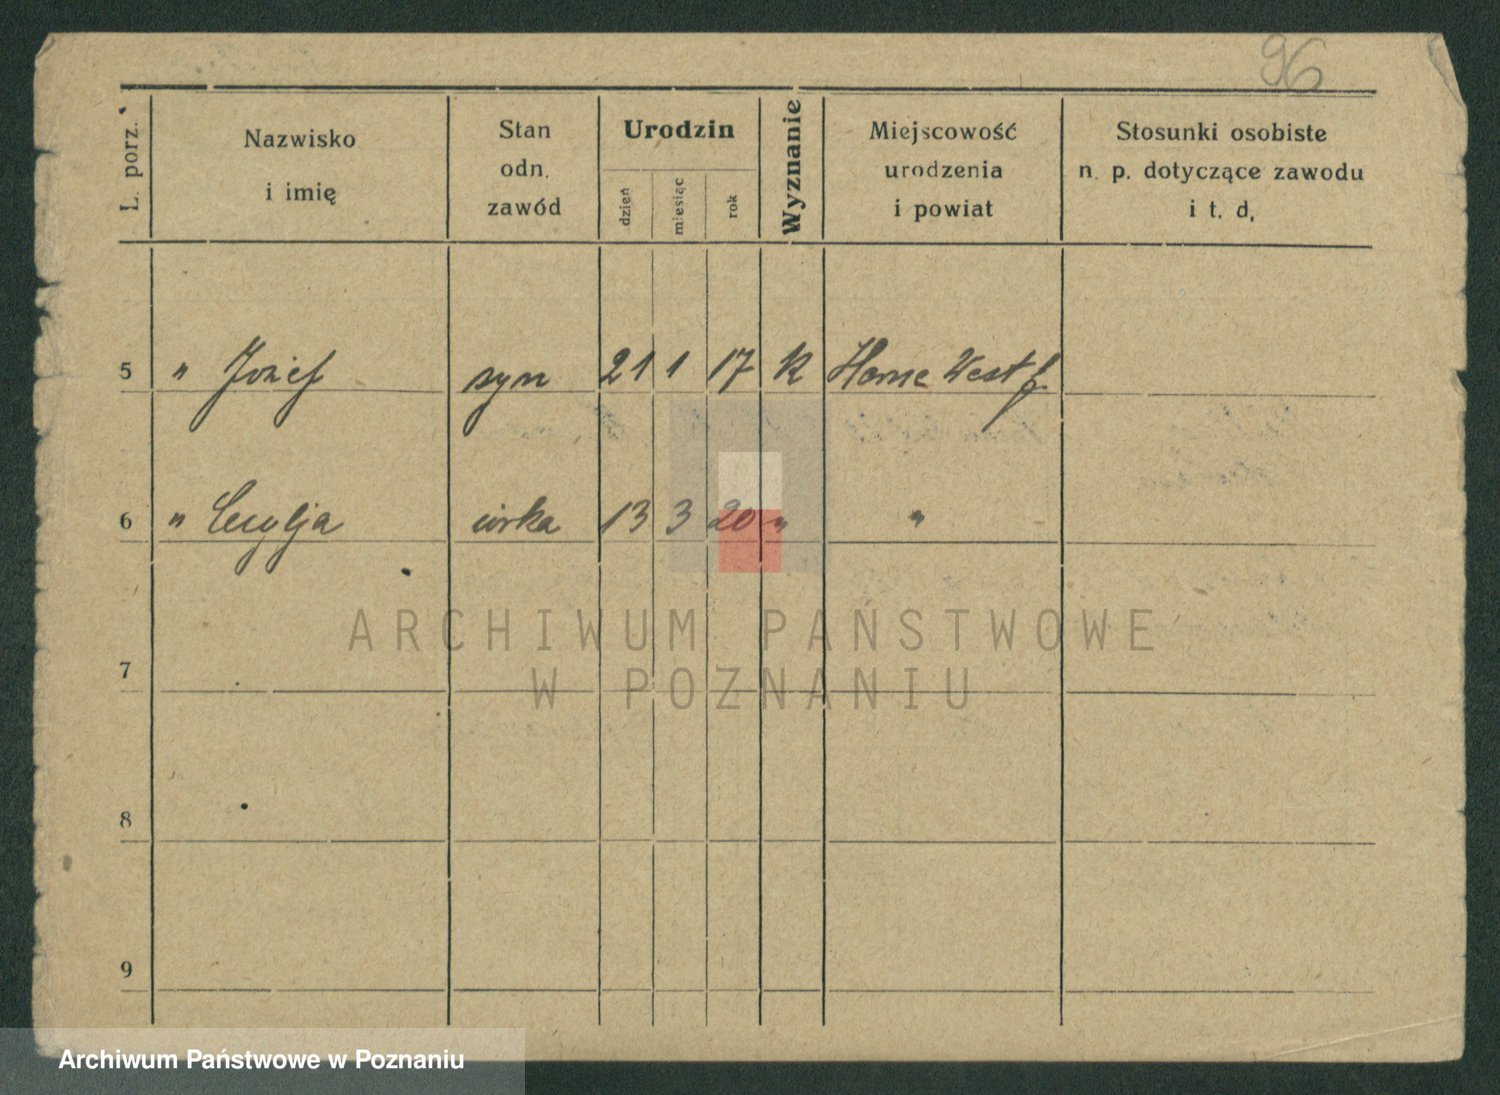 96
L. porz.
Nazwisko
i imię
Stan
odn.
zawód
Urodzin
dzień
miesiąc
rok
Wyznanie
Miejscowość
urodzenia
i powiat
Stosunki osobiste
n. p. dotyczące zawodu
i t. d,
5 " Józef syn 21 1 17 K Horne Westf.
6 " Cecylja córka 13 3 20 " "
7
8
9
ARCHIWUM PAŃSTWOWE
W POZNANIU
Archiwum Państwowe w Poznaniu